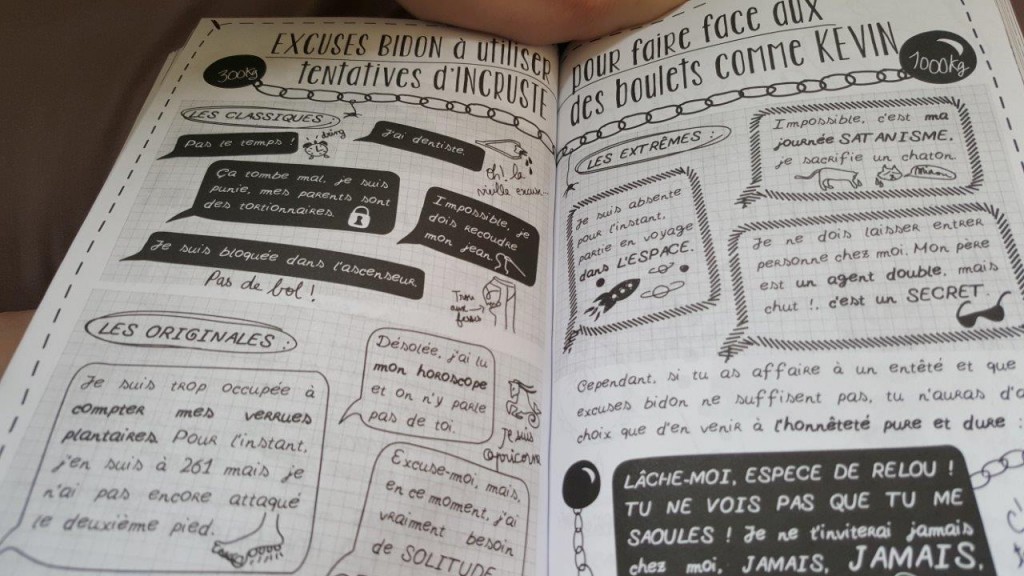 EXCUSES BIDON à utiliser
tentatives d'INCRUSTE
300kg
LES CLASSIQUES
Pas le temps !
ding
J'ai dentiste.
Oh! la
vieille excuse...
Ça tombe mal, je suis
punie, mes parents sont
des tortionnaires
Impossible, je
dois recoudre
mon jean
Je suis bloquée dans l'ascenseur
Pas de bol !
Trou
aux
fesses
LES ORIGINALES :
Je suis TROP occupée à
compter mes verrues
plantaires Pour l'instant,
j'en suis à 261 mais je
n'ai pas encore attaqué
le deuxième pied.
Désolée, j'ai lu
mon horoscope
et on n'y parle
pas de toi.
je suis
Capricorne
Excuse-moi, mais,
en ce moment, j'ai
vraiment besoin
de SOLITUDE
pour faire face aux
des boulets comme KEVIN
1000kg
LES EXTRÊMES :
Impossible, c'est ma
journée SATANISME,
je sacrifie un chaton.
Je suis absente
pour l'instant,
partie en voyage
dans L'ESPACE.
Je ne dois laisser entrer
personne chez moi. Mon père
est un agent double, mais
chut !, c'est un SECRET
Cependant, si tu as affaire à un entêté et que
excuses bidon ne suffisent pas, tu n'auras d'a
choix que d'en venir à l'honnêteté pure et dure :
LÂCHE-MOI, ESPECE DE RELOU !
TU NE VOIS PAS QUE TU ME
SAOULES ! Je ne t'inviterai jamais
chez moi, JAMAIS, JAMAIS,